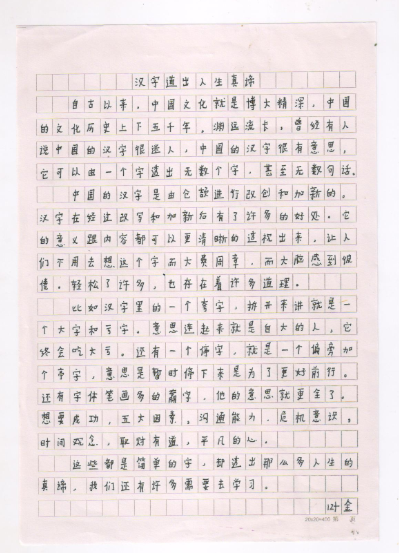 汉字道出人生真谛
自古以来，中国文化就是博大精深，中国
的文化历史上下五千年，渊远流长。曾经有人
说中国的汉字很迷人，中国的汉字很有意思，
它可以由一个字造出无数个字，甚至无数句话。
中国的汉字是由它进行改创和加新的。
汉字在经过改写和加新后有了许多的好处。它
的意义跟内容都可以更清晰的造出来，让人
们不用去想这个字而大费周章，而大脑感到很
倦。轻松了许多，也存在着许多道理。
比如汉字里的一个夸字，拆开来讲就是一
个大字和亏字。意思连起来就是自大的人，它
终会吃大亏。还有一个停字，就是一个偏旁加
个亭字，意思是暂时停下来是为了更好前行。
还有字体笔画多的赢字，他的意思就更全了。
想要成功，五大因素。沟通能力，危机意识，
时间观念，取财有道，平凡的心。
这些都是简单的字，却造出那么多人生的
真谛，我们还有许多需要去学习。
叶金
20X20=400